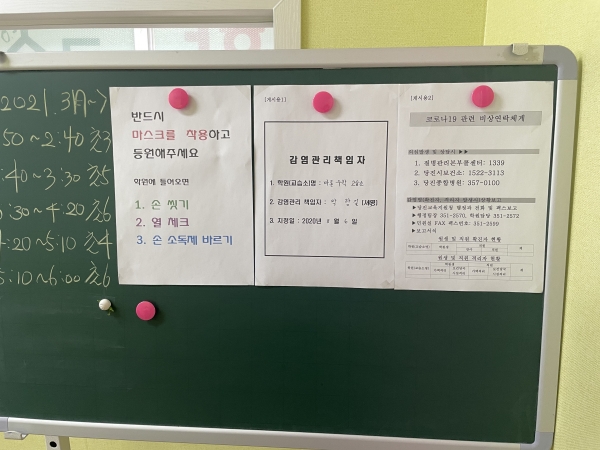 2021. 3月~
50~2:40 초3
:40~3:30 초5
:30~4:20 초6
:20~5:10 초4
:10~6:00 초6
반드시
마스크를 착용하고
등원해주세요
학원에 들어오면
1. 손 씻기
2. 열 체크
3. 손 소독제 바르기
[게시용1]
감염관리책임자
1. 학원(교습소)명 :
2. 감염관리 책임자 : (서명)
3. 지정일 : 2020년 월 일
[게시용2]
코로나19 관련 비상연락체계
▶▶
1. 질병관리본부콜센터: 1339
2. 당진시보건소: 1522-3113
3. 당진종합병원: 357-0100
▶당진교육지원청 행정과 전화 및 팩스보고
▶행정팀장 351-2570, 학원담당 351-2572
▶민원실 FAX 팩스번호: 351-2599
▶보고서식
원생 및 직원 확진자 현황
원생 및 직원 격리자 현황